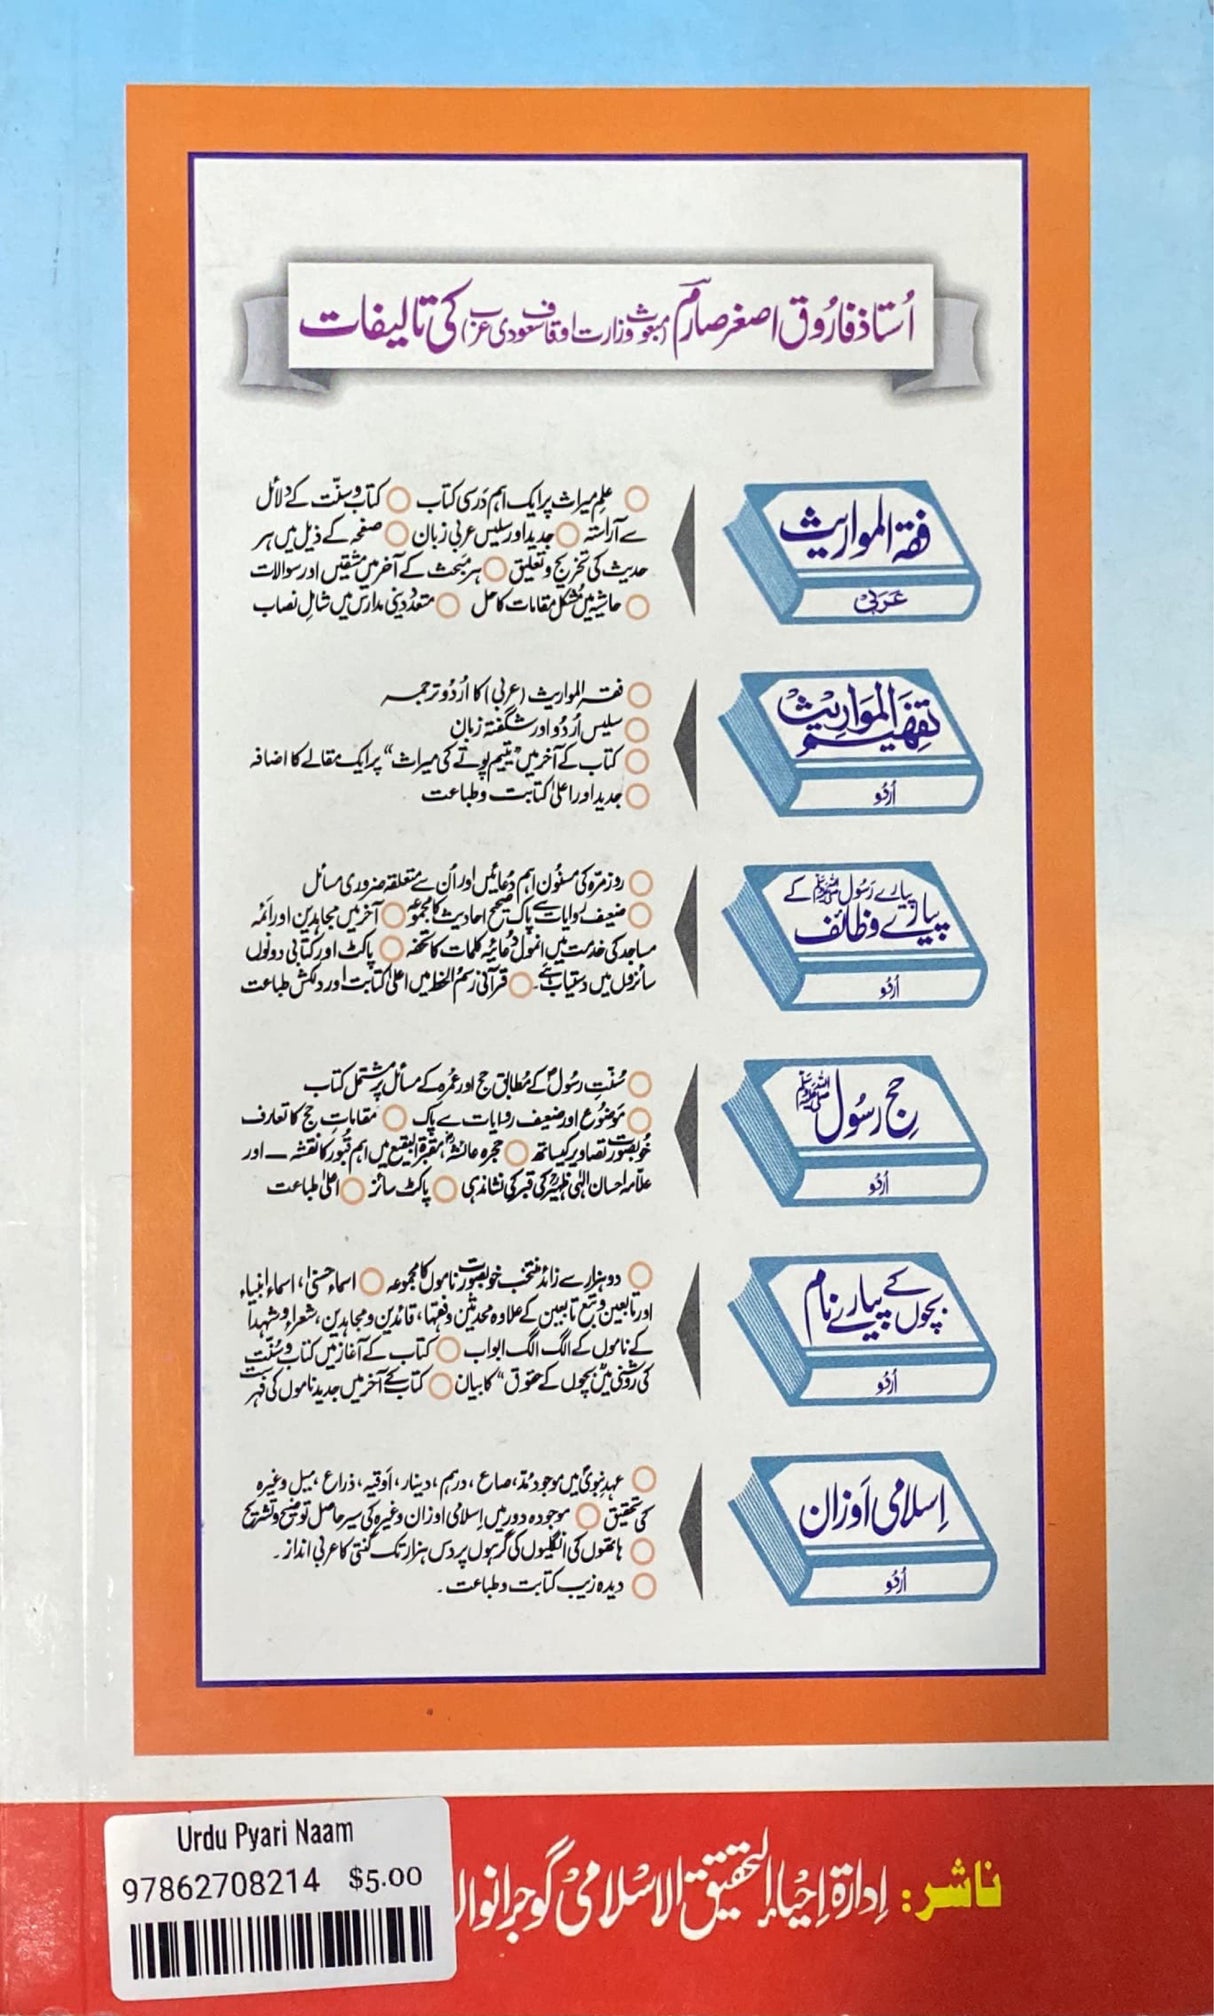 اُستاذ فارُوق اصغر صارم (مبعوث وزارت اوقاف سعودی عرب) کی تالیفات
فقہ المواریث
عَربی
○ علمِ میراث پر ایک اہم درسی کتاب ○ کتاب و سنّت کے دلائل
سے آراستہ ○ جدید اور سلیس عربی زبان ○ صفحہ کے ذیل میں ہر
حدیث کی تخریج و تعلیق ○ ہر مَبحث کے آخر میں مشقیں اور سوالات
○ حاشیہ میں مُشکل مقامات کا حل ○ متعدد دینی مدارس میں شاملِ نصاب
تفہیم المَوَاریث
اُردُو
○ فقہ المواریث (عربی) کا اُردُو ترجمہ
○ سلیس اُردُو اور شگفتہ زبان
○ کتاب کے آخر میں ”یتیم پوتے کی میراث“ پر ایک مقالے کا اضافہ
○ جدید اور اعلیٰ کتابت و طباعت
پیارے رَسُول ﷺ کے
پیارے وظائف
اُردُو
○ روزمرّہ کی مسنُون اہم دُعائیں اور اُن سے متعلقہ ضروری مسائل
○ ضعیف روایات سے پاک صحیح احادیث کا مجموعہ ○ آخر میں مجاہدین اور ائمہ
مساجد کی خدمت میں انمول دُعائیہ کلمات کا تحفہ ○ پاکٹ اور کتابی دونوں
سائزوں میں دستیاب ہے۔ ○ قرآنی رسمُ الخط میں اعلیٰ کتابت اور دلکش طباعت
حج رسُول ﷺ
اُردُو
○ سُنّتِ رسُول کے مُطابق حج اور عُمرہ کے مسائل پر مشتمل کتاب
○ مَوضُوع اور ضعیف روایات سے پاک ○ مقاماتِ حج کا تعارف
خُوبصُورت تصاویر کیساتھ ○ حجرہ عائشہ، مقبرۃ البقیع میں اہم قبُور کا نقشہ — اور
علاّمہ احسان الٰہی ظہیر کی قبر کی نشاندہی ○ پاکٹ سائز ○ اعلیٰ طباعت
بچوں کے پیارے نام
اُردُو
○ دو ہزار سے زائد منتخب خوبصُورت ناموں کا مجموعہ ○ اسماء حسنیٰ، اسماء انبیاء
اور تابعین و تبع تابعین کے علاوہ محدثین و فقہاء، قائدین و مجاہدین، شعراء و شہداء
کے ناموں کے الگ الگ ابواب ○ کتاب کے آغاز میں کتاب و سُنّت
کی روشنی میں ”بچوں کے حقوق“ کا بیان ○ کتاب کے آخر میں جدید ناموں کی فہرست
اِسلامی اَوزان
اُردُو
○ عہدِ نبویؐ میں موجود مُد، صاع، درہم، دینار، اَوقیہ، ذراع، میل وغیرہ
کی تحقیق ○ موجودہ دور میں اِسلامی اوزان وغیرہ کی سیر حاصل توضیح و تشریح
○ ہاتھوں کی انگلیوں کی گرہوں پر دس ہزار تک گنتی کا عربی انداز۔
○ دیدہ زیب کتابت و طباعت۔
ناشر: اِدارۃ اِحیاء التحقیق الاسلامی گوجرانوال
Urdu Pyari Naam
97862708214 $5.00